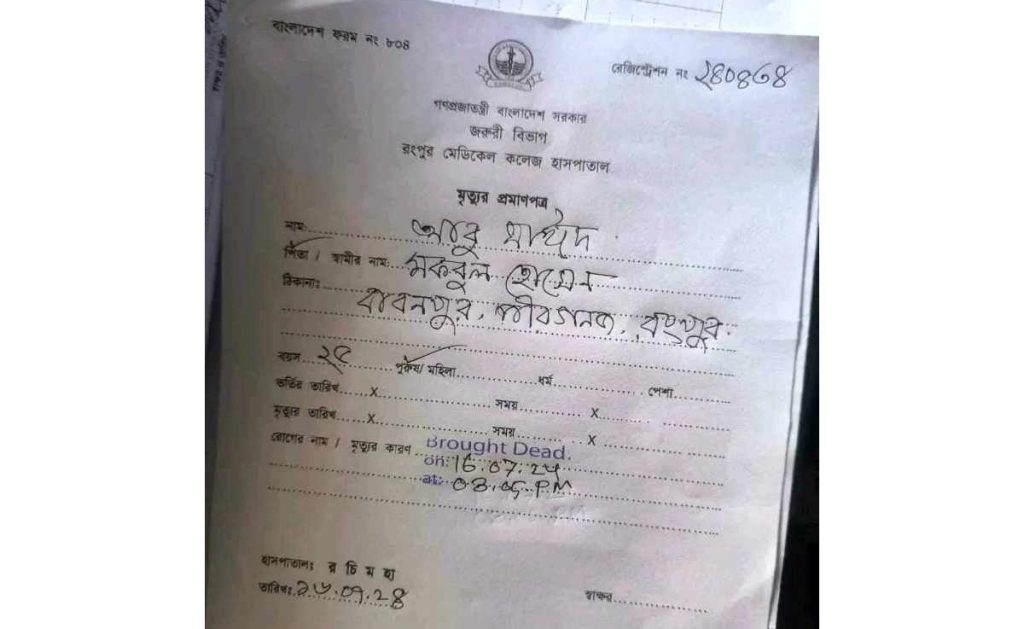 বাংলাদেশ ফরম নং ৮০৪
রেজিস্ট্রেশন নং ২৪০৪৬৪
গণপ্রজাতন্ত্রী বাংলাদেশ সরকার
জরুরী বিভাগ
রংপুর মেডিকেল কলেজ হাসপাতাল
মৃত্যুর প্রমাণপত্র
নাম: আবু সাঈদ
পিতা / স্বামীর নাম: মকবুল হোসেন
ঠিকানাঃ বাবনপুর, পীরগনজ, রংপুর
বয়স ২৫ পুরুষ/ মহিলা ধর্ম পেশা
ভর্তির তারিখ X সময় X
মৃত্যুর তারিখ X সময় X
রোগের নাম / মৃত্যুর কারণ Brought Dead.
on: 16.07.24
at: 03.05 PM
হাসপাতালঃ র চি ম হা
তারিখঃ ১৬.০৭.২৪
স্বাক্ষর